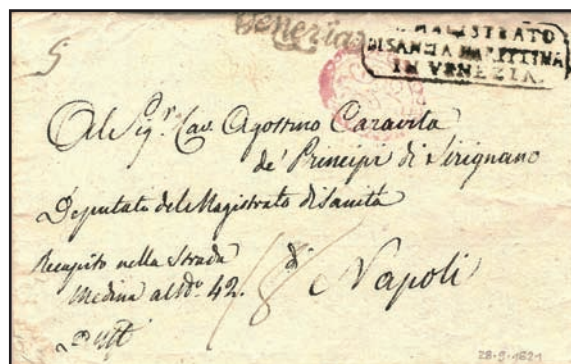 Venezia
MAGISTRATO
DI SANITA MARITTIMA
IN VENEZIA.
Al Sigr. Cav. Agostino Caravita
de' Principi di Sirignano
Deputato del Magistrato di Sanità
Recapito nella Strada
Medina al No. 42.
18
Napoli
28-9-1821